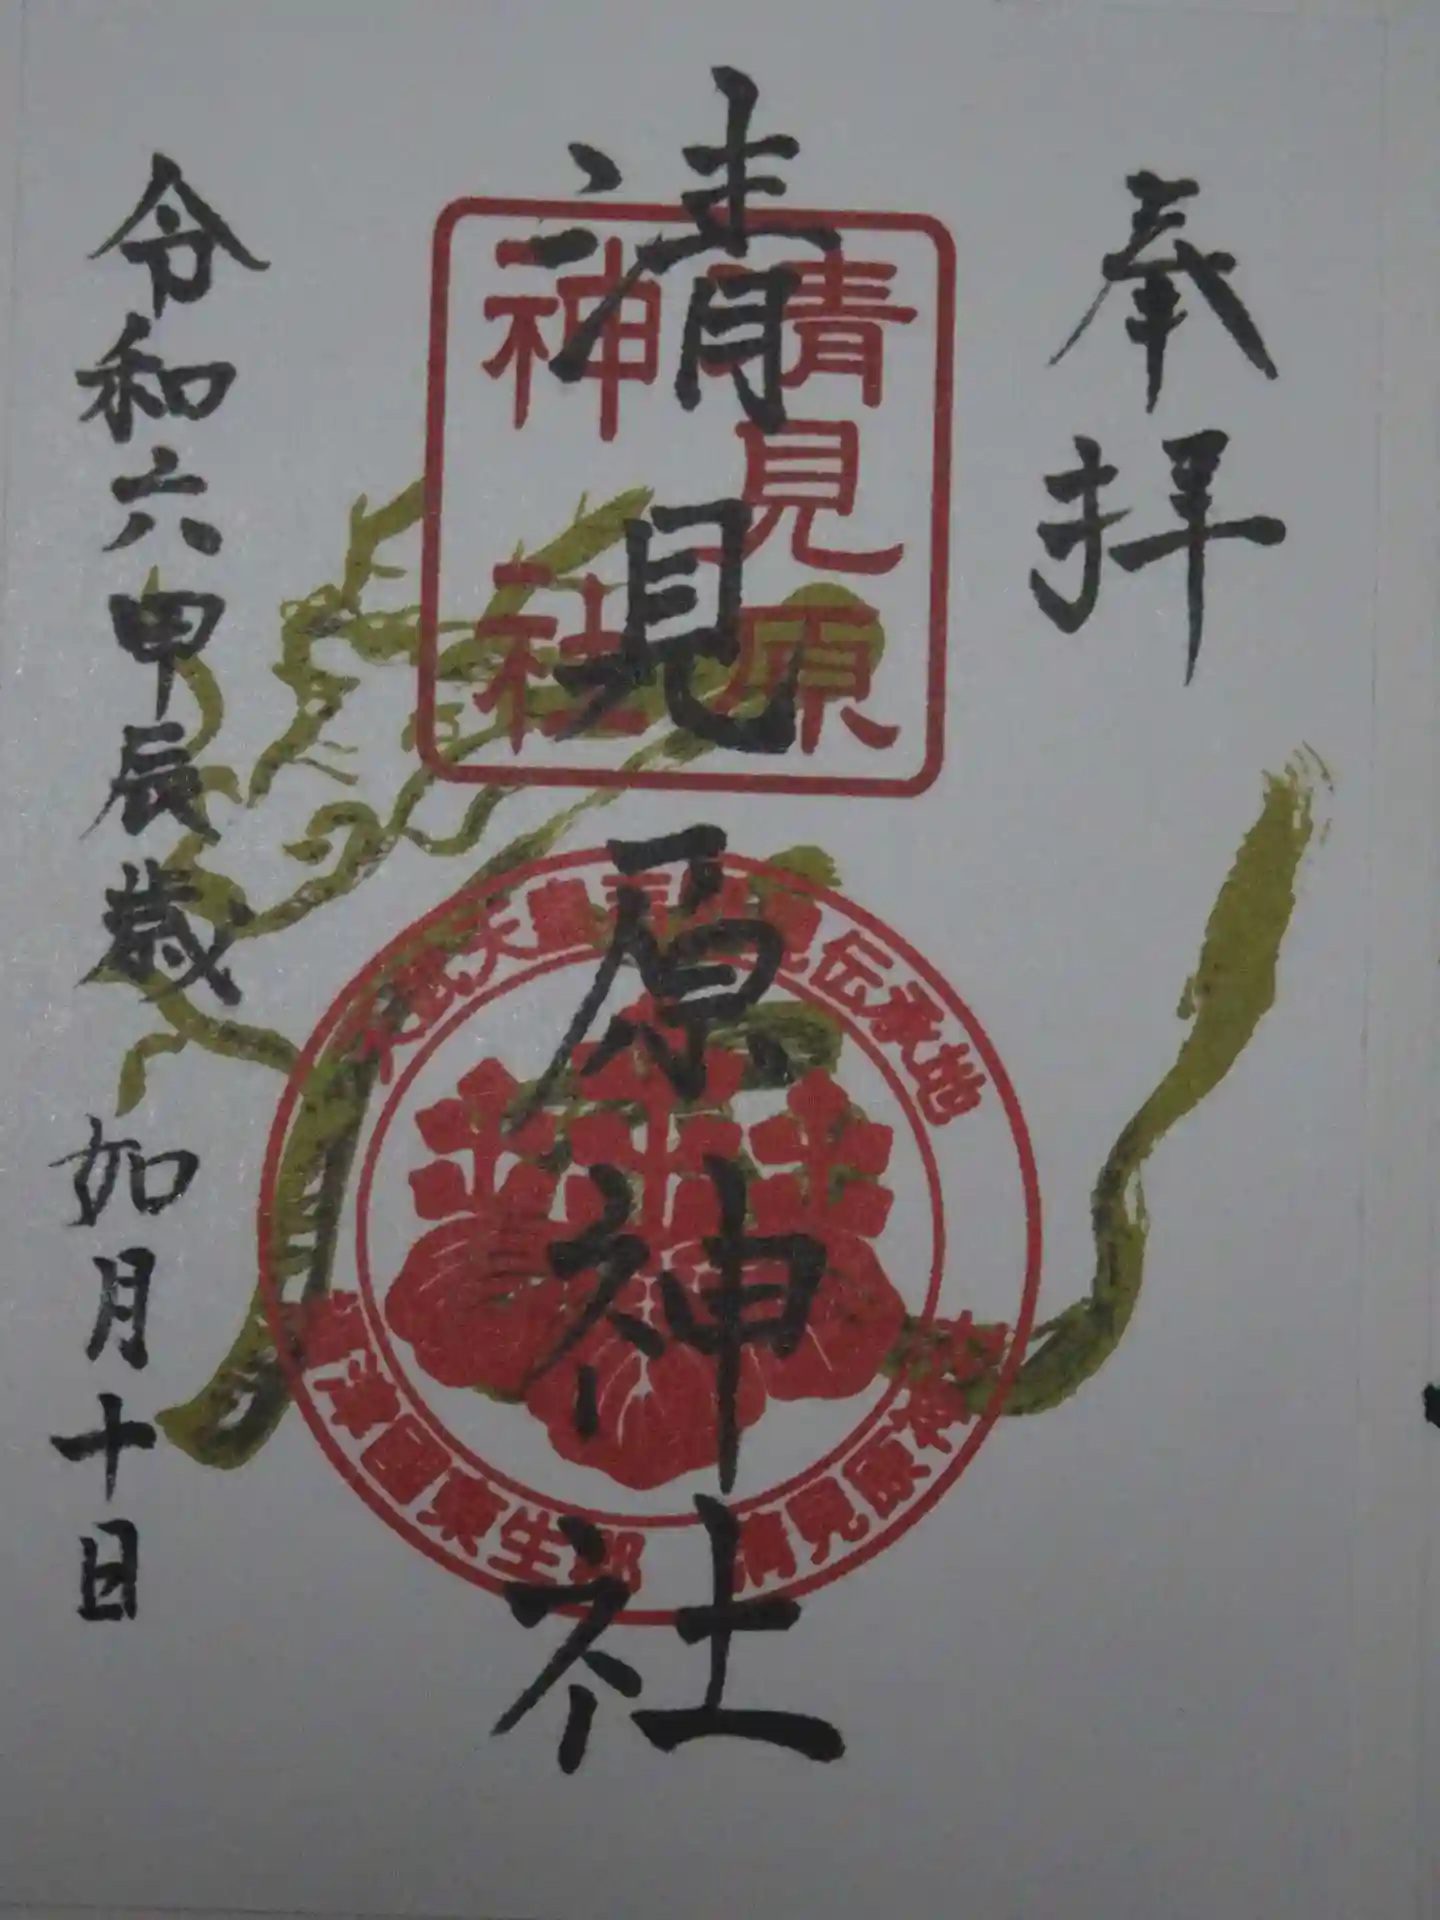 奉拝
清見原神社
清見原
神社
天武天皇
伝承地
国東生郡
清見原神社
令和六甲辰歳 如月十日